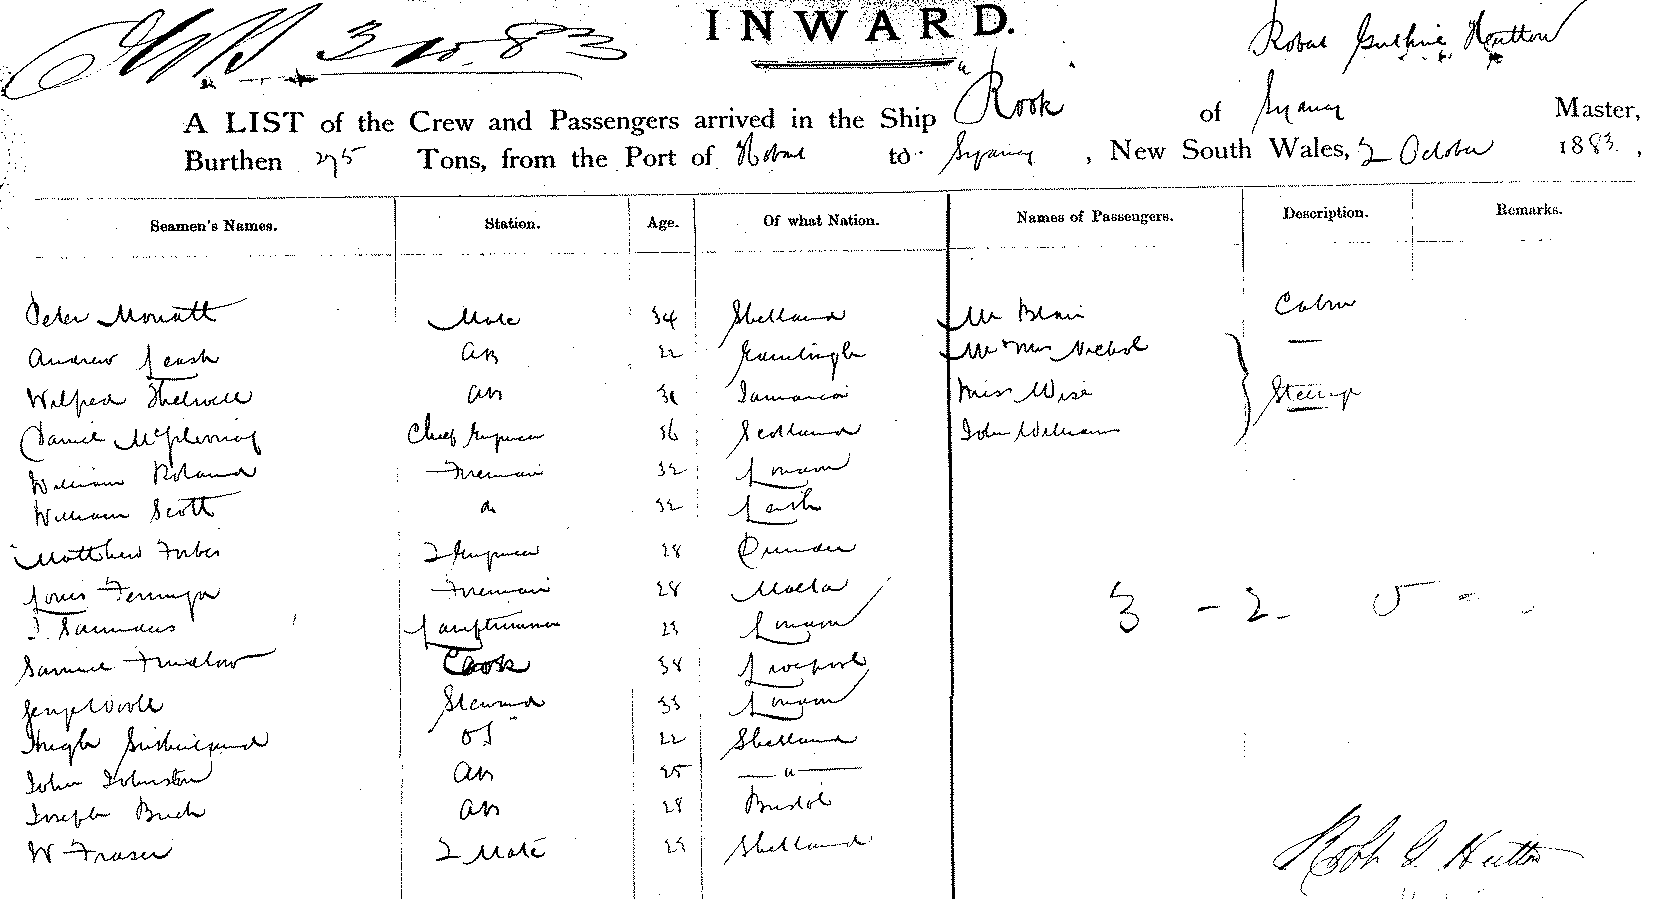 3 10. 83
INWARD.
Robert Guthrie Hutton
A LIST of the Crew and Passengers arrived in the Ship "Rook of Sydney Master,
Burthen 275 Tons, from the Port of Hobart to Sydney, New South Wales, 2 October 1883,
Seamen's Names. Station. Age. Of what Nation. Names of Passengers. Description. Remarks.
Peter Mouatt Mate 34 Shetland Mr Blair Cabin
Andrew Leash AB 22 Mr & Mrs Nichol —
Wilfred Thelwell AB Jamaica Miss Wise Steerage
Daniel Chief Engineer 36 Scotland John William
William Roland Fireman 32 London
William Scott 32 Leith
Matthew Forbes 2 Engineer 28 Dundee
Louis Fireman 28 Malta
J. Saunders Lamptrimmer London
3 - 2 5 - -
Samuel Cook 38 Liverpool
George Woole Steward 33 London
Hugh Sutherland OS 22 Shetland
John Johnston AB 25 — " —
Joseph AB 28 Bristol
W Fraser 2 Mate Shetland
Robt G Hutton